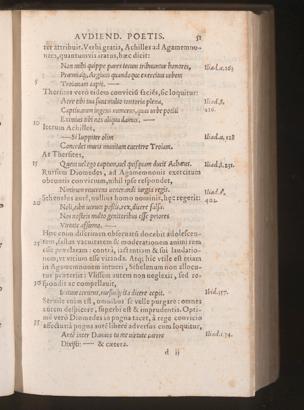 AVDIEND. POETIS. 51
ter attribuit. Verbi gratia, Achilles ad Agamemno-
nem, quantumuis iratus, hæc dicit:
Non mihi quippe pares tecum tribuuntur honores, Iliad. α. 163
Præmiáq;, Argiuûm quandoque exercitus vrbem
5 Troianam capit. —
Thersites verò eidem conuicii faciës, sic loquitur:
Aere tibi tua sunt multo tentoria plena, Iliad. β.
Captiuarum ingens numerus, quas vrbe potiti 226.
Eximias tibi nos aliqua damus. —
10 Iterum Achilles,
— Si Iuppiter olim Iliad. α. 128
Concedet muris munitam euertere Troiam.
At Thersites,
15 Quem vel ego captum, vel quisquam ducit Achæus. Iliad. β. 231.
Rursum Diomedes, ab Agamemnonis exercitum
obeuntis conuicium, nihil ipse respondet,
Nimirum reuerens iurgia regis. Iliad. δ.
20 Sthenelus autē, nullius homo nominis, hęc regerit: 402.
Noli, cùm verum possis, rex, dicere falsa.
Nos nostris multo genitoribus esse priores
Virtute asserimus. —
Hęc enim discrimen obseruatū docebit adolescen-
25 tem, fastus vacuitatem & moderationem animi rem
esse præclaram: contrà, iactantiam & sui laudatio-
nem, vt vitium esse vitanda. Atq; hîc vtile est etiam
in Agamemnonem intueri, Sthenelum non alloqu-
tur præteriit: Vlyssem autem non neglexit, sed re-
30 spondit ac compellauit,
iratum cernens, rursusq́; ista dicere cœpit. Iliad. 357.
Seruile enim est, omnibus se velle purgare: omnes
autem despicere, superbi est & imprudentis. Optí-
mè verò Diomedes in pugna tacet, à rege conuicio
35 affectus: à pugna autē liberè aduersus eum loquitur,
Antè inter Danaos tu me virtute carere Iliad. ι. 34.
Dixisti: — & cætera.
d ij